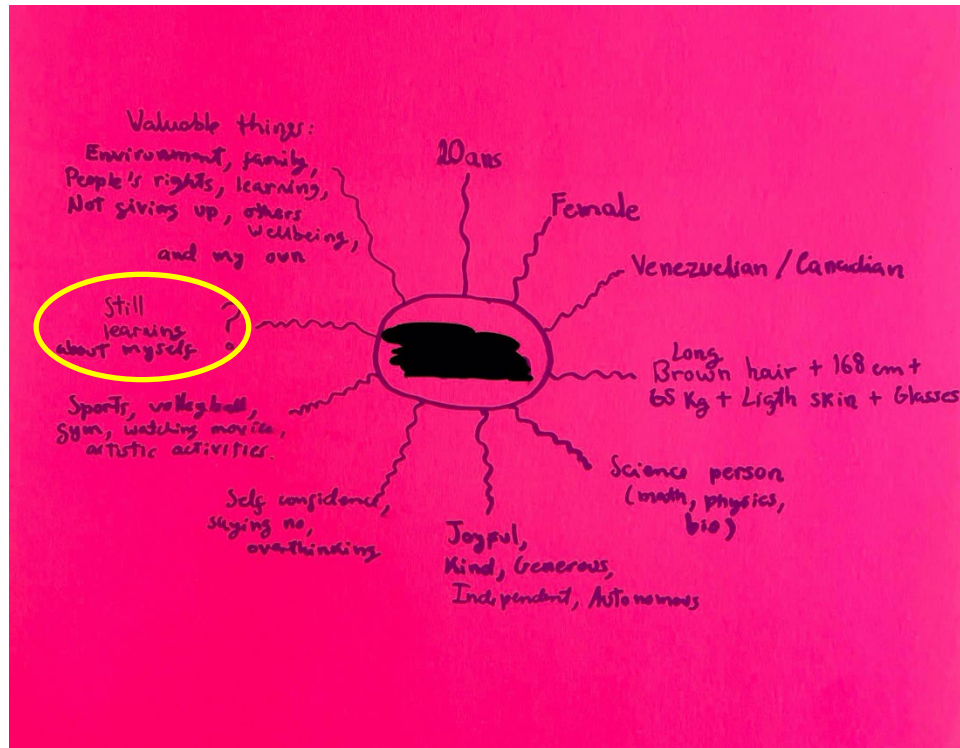 Valuable things:
Environment, family,
People's rights, learning,
Not giving up, others
wellbeing,
and my own
20ans
Female
Venezuelian / Canadian
Long
Brown hair + 168 cm +
65 Kg + Ligth skin + Glasses
Science person
(math, physics,
bio)
Joyful,
Kind, Generous,
Independent, Autonomous
Self confidence,
saying no,
overthinking
Sports, volleyball,
gym, watching movies,
artistic activities.
Still
learning
about myself
?